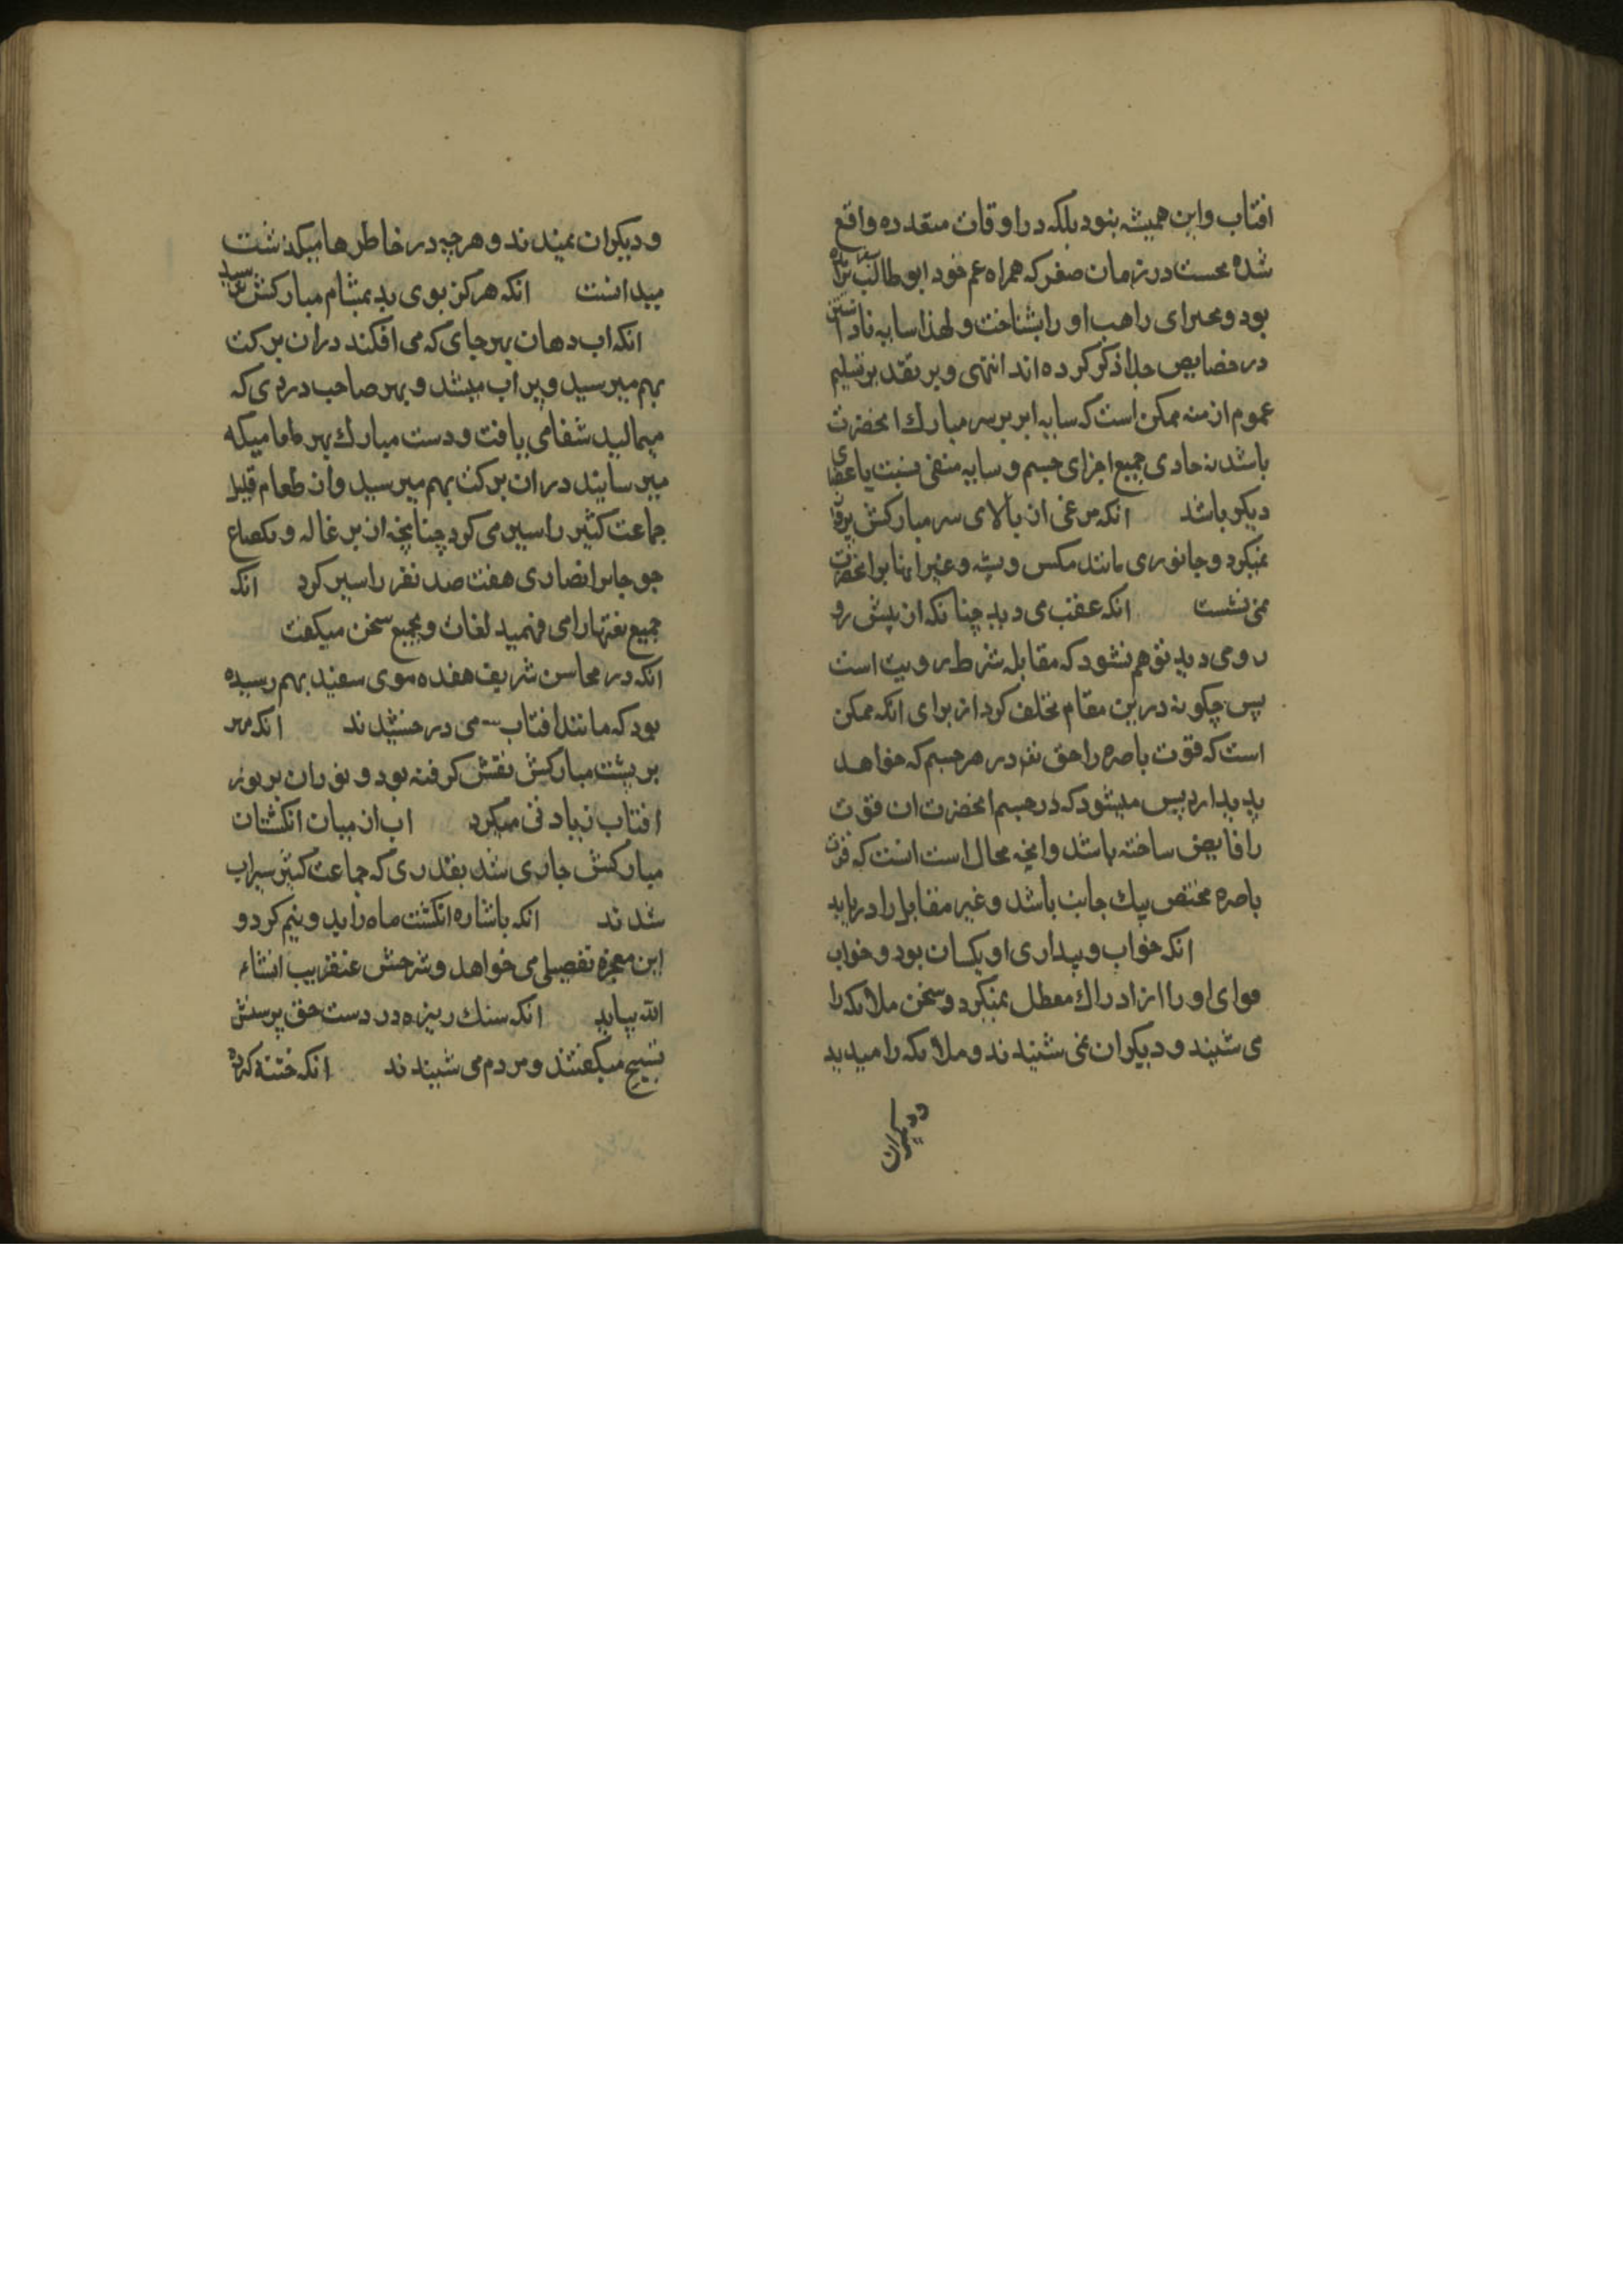 افتاب و این همیشه بنود بلکه در اوقات متعدده واقع
شده نحست در زمان صغر که همراه عم خود ابو طالب
بود و بحیرای راهب او را بشناخت و لهذا سایه
در خصایص جدا ذکر کرده اند انتهی و بر تقدیر تسلیم
عموم ازمنه ممکن است که سایه ابر بر سر مبارک انحضرت
باشد نه حاوی جمیع اجزای جسم و سایه منفی بنسبت باعضای
دیکر باشد انکه مرغی از بالای سر مبارکش پرواز
نمیکرد و جانوری مانند مکس و پشه و غیر اینها بر انحضرت
نمی نشست انکه عقب می دید چنانکه از پیش رو
رو می دید توهم نشود که مقابله شرط رویت است
پس چکونه درین مقام تخلف کرد از برای انکه ممکن
است که قوت باصره را حق تعالی در هر جسم که خواهد
پدید ارد پس میشود که در جسم انحضرت ان قوت
را فایض ساخته باشد و انچه محال است انست که قوت
باصره مختص بیک جانب باشد و غیر مقابل را دریابد
انکه خواب و بیداری او یکسان بود و خواب
قوای او را از ادراک معطل نمیکرد و سخن ملائکه را
می شنید و دیکران نمی شنیدند و ملائکه را میدید
و دیکران
و دیکران نمیدیدند و هر چه در خاطرها میکذشت
میدانست انکه هرکز بوی بد بمشام مبارکش نمیرسید
انکه اب دهان بهر جای که می افکند دران برکت
بهم میرسید و پر اب میشد و بهر صاحب دردی که
میمالید شفا می یافت و دست مبارک بهر طعامیکه
میرسانید دران برکت بهم میرسید و ان طعام قلیل
جماعت کثیر را سیر می کرد چنانچه از بزغاله و یکصاع
جو جابر انصاری هفت صد نفر را سیر کرد انکه
جمیع لغتها را می فهمید لغات و بجمیع سخن میکفت
انکه در محاسن شریف هفده موی سفید بهم رسیده
بود که مانند افتاب می درخشیدند انکه مهر
بر پشت مبارکش نقش کرفته بود و نور ان بر نور
افتاب زیادتی میکرد اب از میان انکشتان
مبارکش جاری شد بقدری که جماعت کثیر سیراب
شدند انکه باشاره انکشت ماه را بدو نیم کرد و
این معجزه تفصیلی می خواهد و شرحش عنقریب انشاء
الله بیاید انکه سنک ریزه در دست حق پرستش
تسبیح میکفتند و مردم می شنیدند انکه ختنه کرده